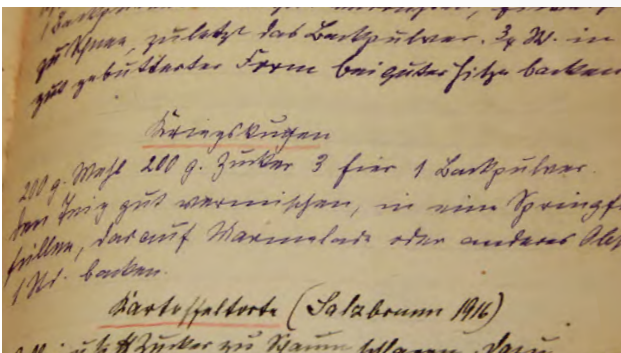 zu Schnee, zuletzt das Backpulver. ¾ St. in
gut gebutterter Form bei guter Hitze backen
Kriegskuchen
200 g. Mehl 200 g. Zucker 3 Eier 1 Backpulver.
den Teig gut vermischen, in eine Springf
füllen, darauf Marmelade oder anderes Obst
1 St. backen.
Kartoffeltorte (Salzbrunn 1916)
Zucker zu Schaum schlagen. Dazu